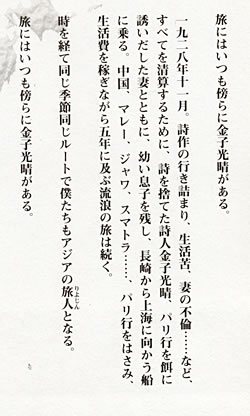 旅にはいつも傍らに金子光晴がある。
一九二八年十一月。詩作の行き詰まり、生活苦、妻の不倫……など、
すべてを清算するために、詩を捨てた詩人金子光晴、パリ行を餌に
誘いだした妻とともに、幼い息子を残し、長崎から上海に向かう船
に乗る。中国、マレー、ジャワ、スマトラ……、パリ行をはさみ、
生活費を稼ぎながら五年に及ぶ流浪の旅は続く。
時を経て同じ季節同じルートで僕たちもアジアの旅人となる。
りよじん
旅にはいつも傍らに金子光晴がある。